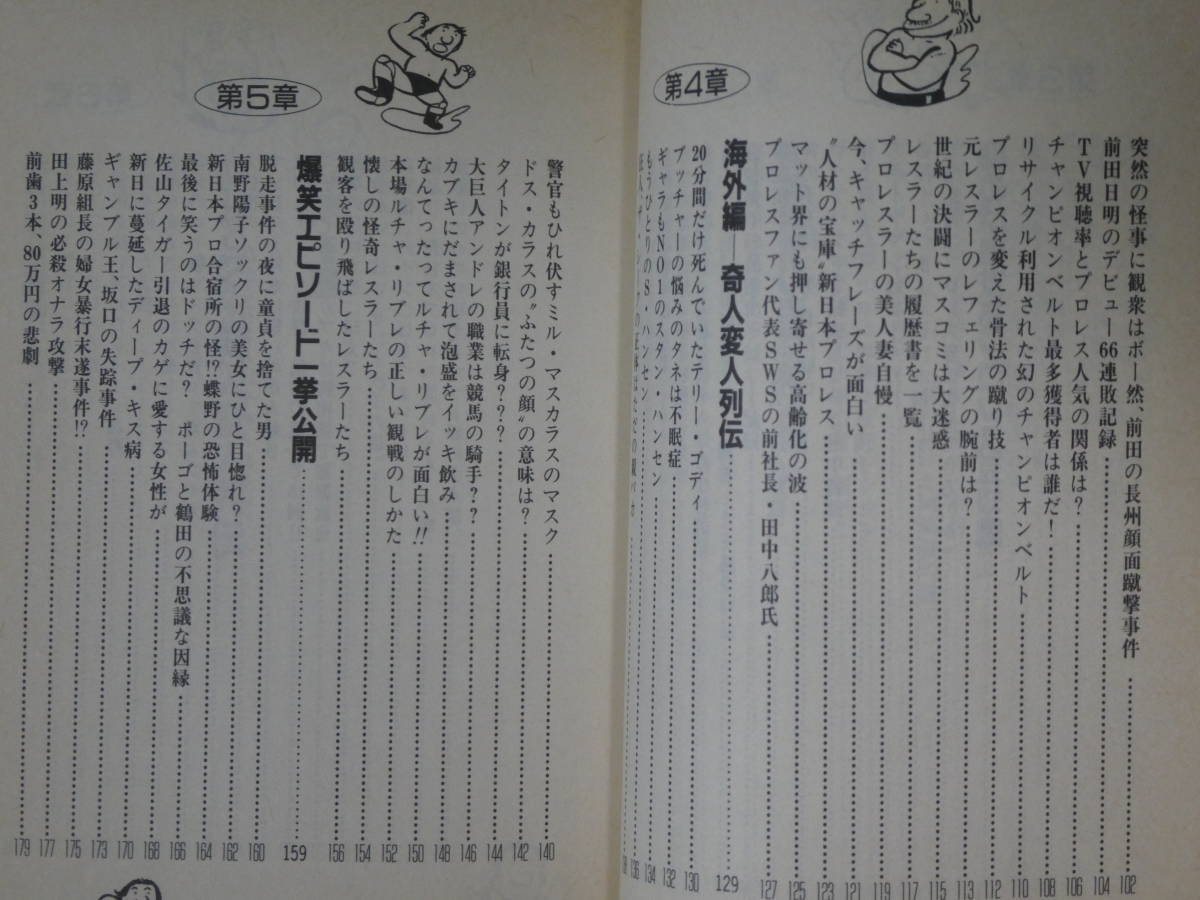 突然の怪事に観衆はボー然、前田の長州顔面蹴撃事件……102
前田日明のデビュー66連敗記録……104
TV視聴率とプロレス人気の関係は?……106
チャンピオンベルト最多獲得者は誰だ!……108
リサイクル利用された幻のチャンピオンベルト……110
プロレスを変えた骨法の蹴り技……112
元レスラーのレフェリングの腕前は?……113
世紀の決闘にマスコミは大迷惑……115
レスラーたちの履歴書を一覧……117
プロレスラーの美人妻自慢……119
今、キャッチフレーズが面白い……121
〝人材の宝庫〟新日本プロレス……123
マット界にも押し寄せる高齢化の波……125
プロレスファン代表SWSの前社長・田中八郎氏……127
第4章
海外編─奇人変人列伝……129
20分間だけ死んでいたテリー・ゴディ……130
ブッチャーの悩みのタネは不眠症……132
ギャラもNO1のスタン・ハンセン……134
もうひとりのS・ハンセン……136
警官もひれ伏すミル・マスカラスのマスク……140
ドス・カラスの〝ふたつの顔〟の意味は?……142
タイトンが銀行員に転身???……144
大巨人アンドレの職業は競馬の騎手??……146
カブキにだまされて泡盛をイッキ飲み……148
なんてったってルチャ・リブレが面白い!!……150
本場ルチャ・リブレの正しい観戦のしかた……152
懐しの怪奇レスラーたち……154
観客を殴り飛ばしたレスラーたち……156
第5章
爆笑エピソード一挙公開……159
脱走事件の夜に童貞を捨てた男……160
南野陽子ソックリの美女にひと目惚れ?……162
新日本プロ合宿所の怪!?蝶野の恐怖体験……164
最後に笑うのはドッチだ? ポーゴと鶴田の不思議な因縁……166
佐山タイガー引退のカゲに愛する女性が……168
新日に蔓延したディープ・キス病……170
ギャンブル王、坂口の失踪事件……173
藤原組長の婦女暴行末遂事件!?……175
田上明の必殺オナラ攻撃……177
前歯3本、80万円の悲劇……179